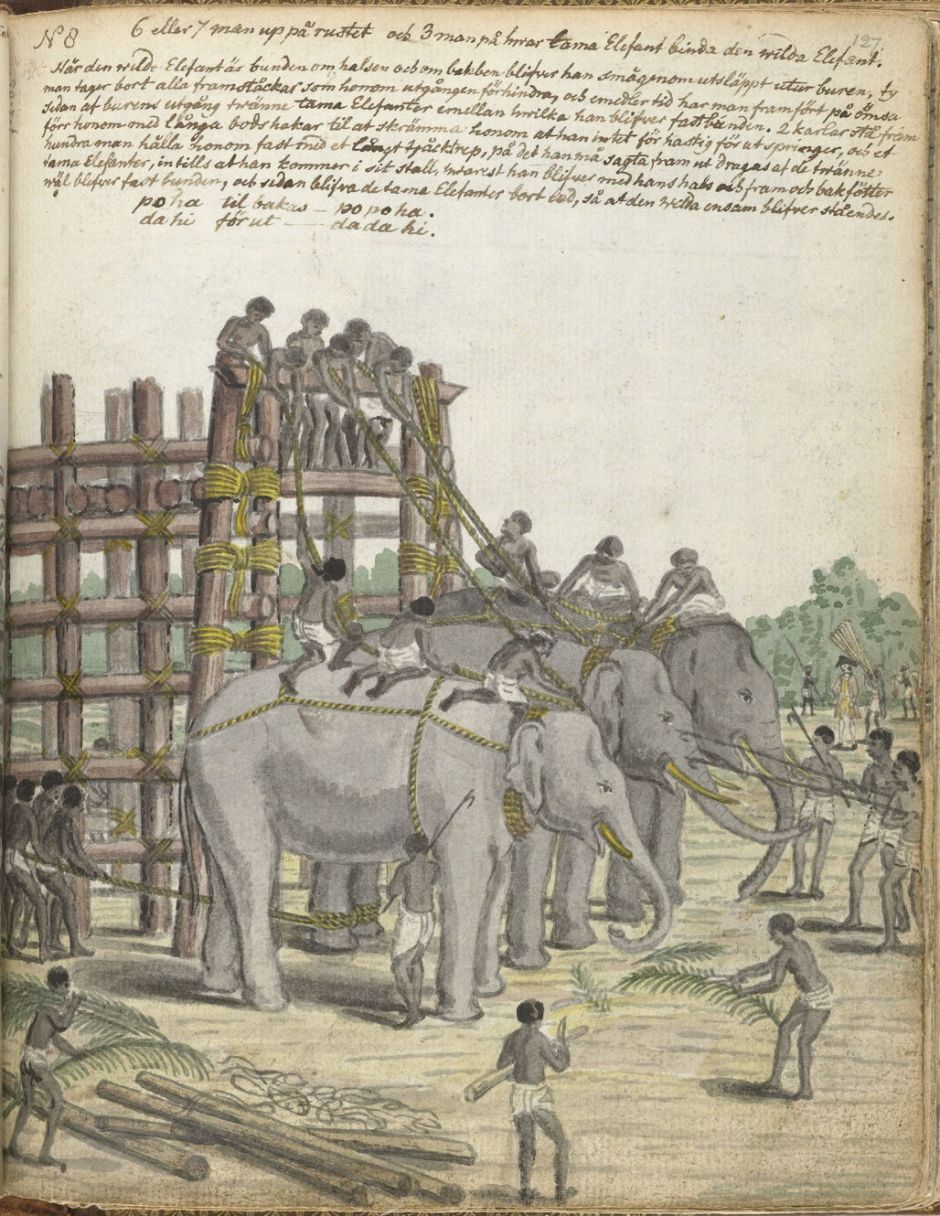 N° 8
127
6 eller 7 man up på rustet och 3 man på hwar tama Elefant binda den wilda Elefant.
När den wilde Elefant är bunden om halsen och om bakben blifver han smågenom utsläppt utur buren, ty
man tager bort alla framstäckar som honom utgången förhindra, och emedler tid har man framfört på ömsa
sidan at burens utgång twänne tama Elefanter emillan hwilka han blifver fastbunden. 2 karlar stå fram
förr honom med långa bodshakar til at skrämma honom at han intet för hastig för ut springer, och et
hundra man hålla honom fast med et långt täcktrep, på det han må sagta fram ut dragas af de twänne
tama Elefanter, in tills at han kommer i sit stall, hwarest han blifver med hans hals och fram och bak fötter
wäl blifver fast bunden, och sidan blifva de tama Elefanter bort led, så at den wilda ensam blifver ståendes.
po ha til bakas — po po ha.
da hi förut — da da hi.